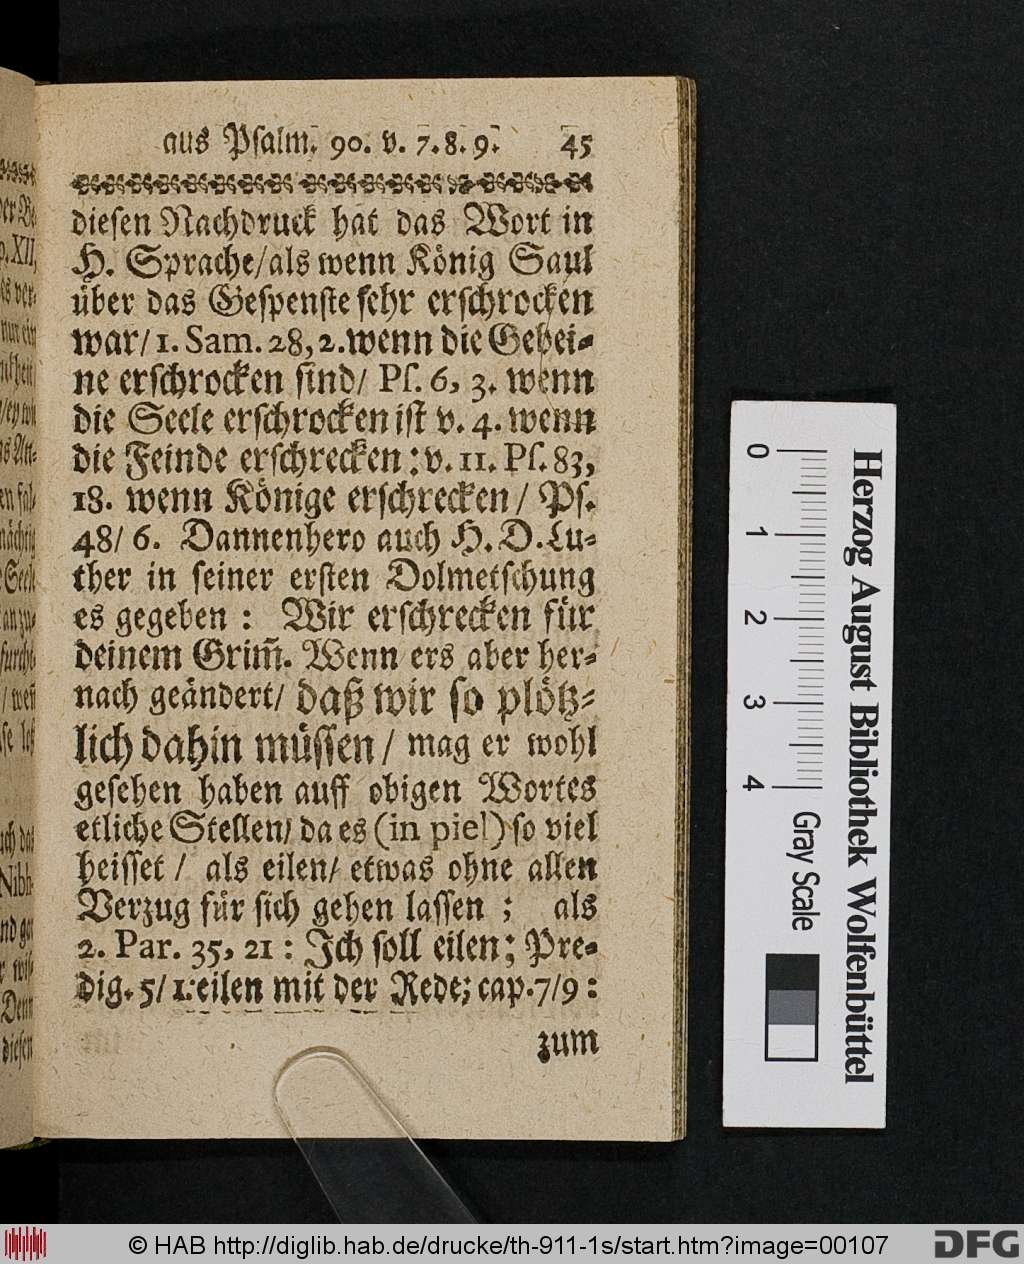 aus Psalm. 90. v. 7. 8. 9. 45
diesen Nachdruck hat das Wort in
H. Sprache/als wenn König Saul
über das Gespenste sehr erschrocken
war/ 1. Sam. 28, 2. wenn die Gebei-
ne erschrocken sind/ Ps. 6, 3. wenn
die Seele erschrocken ist v. 4. wenn
die Feinde erschrecken: v. 11. Ps. 83,
18. wenn Könige erschrecken / Ps.
48/ 6. Dannenhero auch H. D. Lu-
ther in seiner ersten Dolmetschung
es gegeben : Wir erschrecken für
deinem Grim̃. Wenn ers aber her-
nach geändert/ daß wir so plötz-
lich dahin müssen / mag er wohl
gesehen haben auff obigen Wortes
etliche Stellen/ da es (in piel) so viel
heisset / als eilen/ etwas ohne allen
Verzug für sich gehen lassen ; als
2. Par. 35, 21 : Ich soll eilen; Pre-
dig. 5/ 1: eilen mit der Rede; cap. 7/9 :
zum
Herzog August Bibliothek Wolfenbüttel
0 1 2 3 4 Gray Scale
© HAB http://diglib.hab.de/drucke/th-911-1s/start.htm?image=00107
DFG